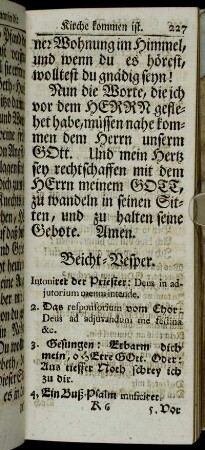 Kirche kommen ist. 227
ner Wohnung im Himmel,
und wenn du es hörest,
wolltest du gnädig seyn!
Nun die Worte, die ich
vor dem HERRN gefle-
het habe, müssen nahe kom-
men dem Herrn unserm
GOtt. Und mein Hertz
sey rechtschaffen mit dem
HErrn meinem GOTT,
zu wandeln in seinen Sit-
ten, und zu halten seine
Gebote. Amen.
Beicht-Vesper.
Intoniret der Priester: Deus in ad-
jutorium meum intende.
2. Das responsorium vom Chor:
Deus ad adjuvandum me festina
&c.
3. Gesungen: Erbarm dich
mein, o HErre GOtt. Oder:
Aus tieffer Noth schrey ich
zu dir.
4. Ein Buß-Psalm musiciret.
K 6 5. Vor